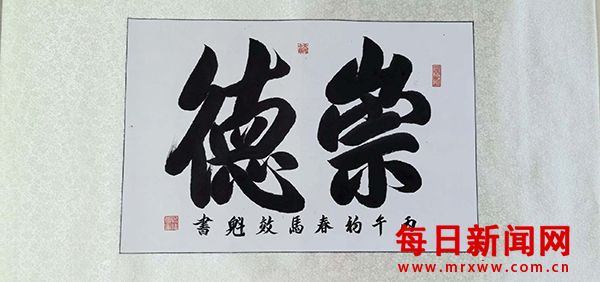 崇德
丙午初春馬效魁書
每日新闻网
www.mrxww.com.cn